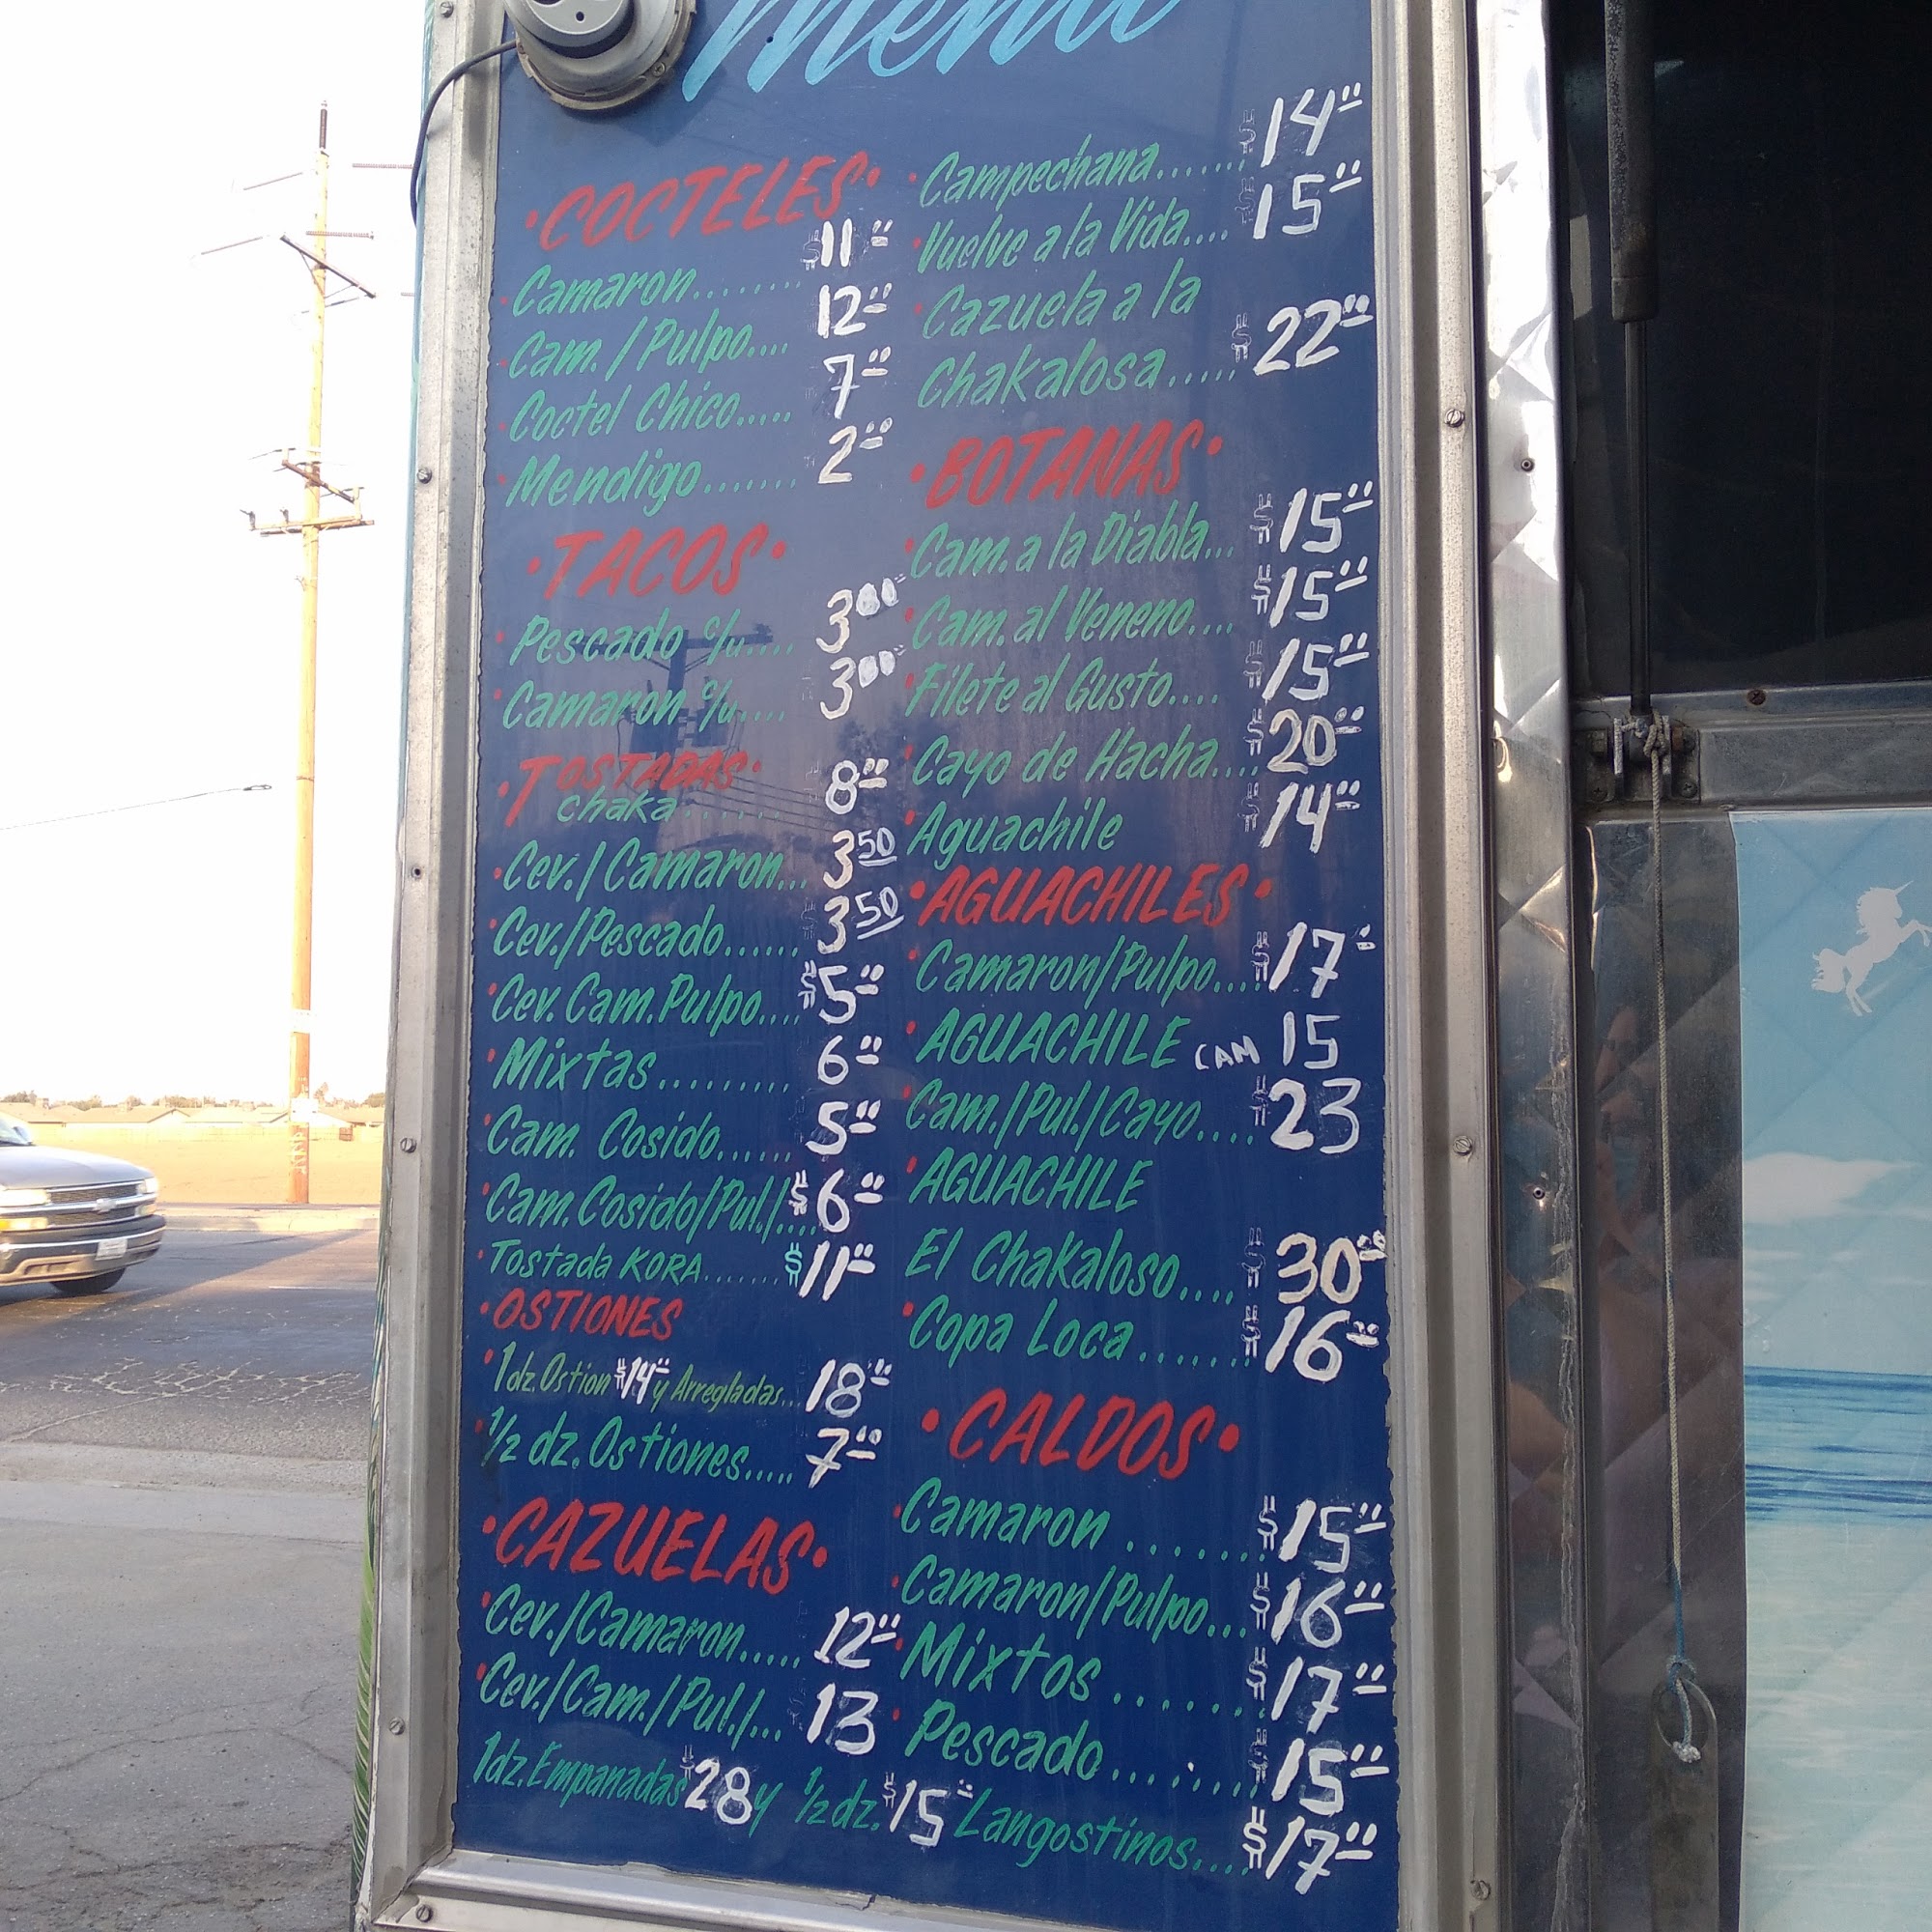 Menu
•COCTELES•
•Camaron........ $11.00
•Cam./Pulpo.... 12.00
•Coctel Chico..... 7.00
•Mendigo....... 2.00
•TACOS•
•Pescado c/u.... 3.00
•Camaron c/u.... 3.00
•TOSTADAS•
chaka...... 8.00
•Cev./Camaron... 3.50
•Cev./Pescado...... 3.50
•Cev. Cam. Pulpo.... $5.00
•Mixtas......... 6.00
•Cam. Cosido...... 5.00
•Cam. Cosido/Pul./.... $6.00
•Tostada KORA....... $11.00
•OSTIONES
•1dz. Ostion $14.00 y Arregladas... 18.00
•1/2 dz. Ostiones..... 7.00
•CAZUELAS•
•Cev./Camaron..... 12.00
•Cev./Cam./Pul./... 13
1dz. Empanadas $28 y 1/2 dz. $15.00
•Campechana...... $14.00
•Vuelve a la Vida.... $15.00
•Cazuela a la
Chakalosa..... $22.00
•BOTANAS•
•Cam. a la Diabla... $15.00
•Cam. al Veneno.... $15.00
•Filete al Gusto.... $15.00
•Cayo de Hacha.... $20.00
•Aguachile $14.00
•AGUACHILES•
•Camaron/Pulpo.... $17
•AGUACHILE CAM 15
•Cam./Pul./Cayo.... $23
•AGUACHILE
El Chakaloso.... $30.00
•Copa Loca....... $16.00
•CALDOS•
•Camaron ....... $15.00
•Camaron/Pulpo... $16.00
•Mixtos ....... $17.00
•Pescado........ $15.00
Langostinos.... $17.00